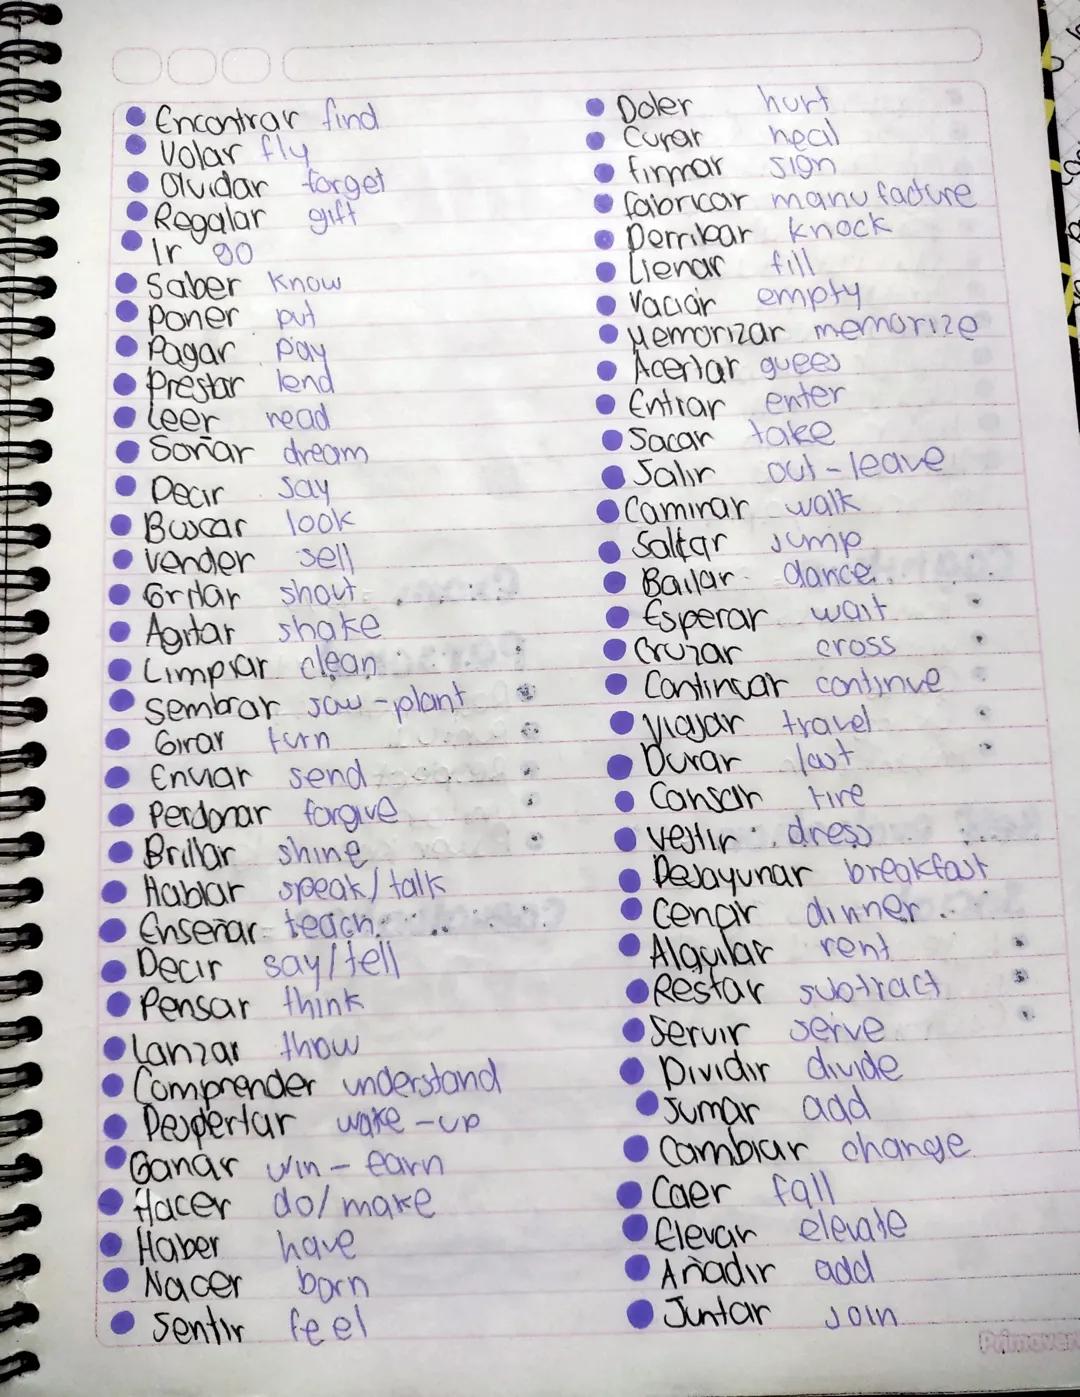 Encontrar find
Volar fly
Olvidar forget
Regalar gift
Ir go
Saber know
Poner put
Pagar pay
Prestar lend
Leer read
Soñar dream
Decir say
Buscar look
Vender sell
Gritar shout
Agitar shake
Limpiar clean
Sembrar sow-plant
Girar turn
Enviar send
Perdonar forgive
Brillar shine
Hablar speak/talk
Enseñar teach
Decir say/tell
Pensar think
Lanzar thow
Comprender understand
Despertar wake-up
Ganar win-earn
Hacer do/make
Haber have
Nacer born
Sentir feel
Doler hurt
Curar heal
firmar sign
fabricar manufacture
Derribar knock
Llenar fill
Vaciar empty
Memorizar memorize
Acertar guees
Entrar enter
Sacar take
Salir out-leave
Caminar walk
Saltar jump
Bailar dance
Esperar wait
Cruzar cross
Continuar continue
Viajar travel
Durar last
Cansar tire
vestir dress
Desayunar breakfast
Cenar dinner
Alquilar rent
Restar subtract
Servir serve
Dividir divide
Sumar add
Cambiar change
Caer fall
Elevar elevate
Añadir add
Juntar join